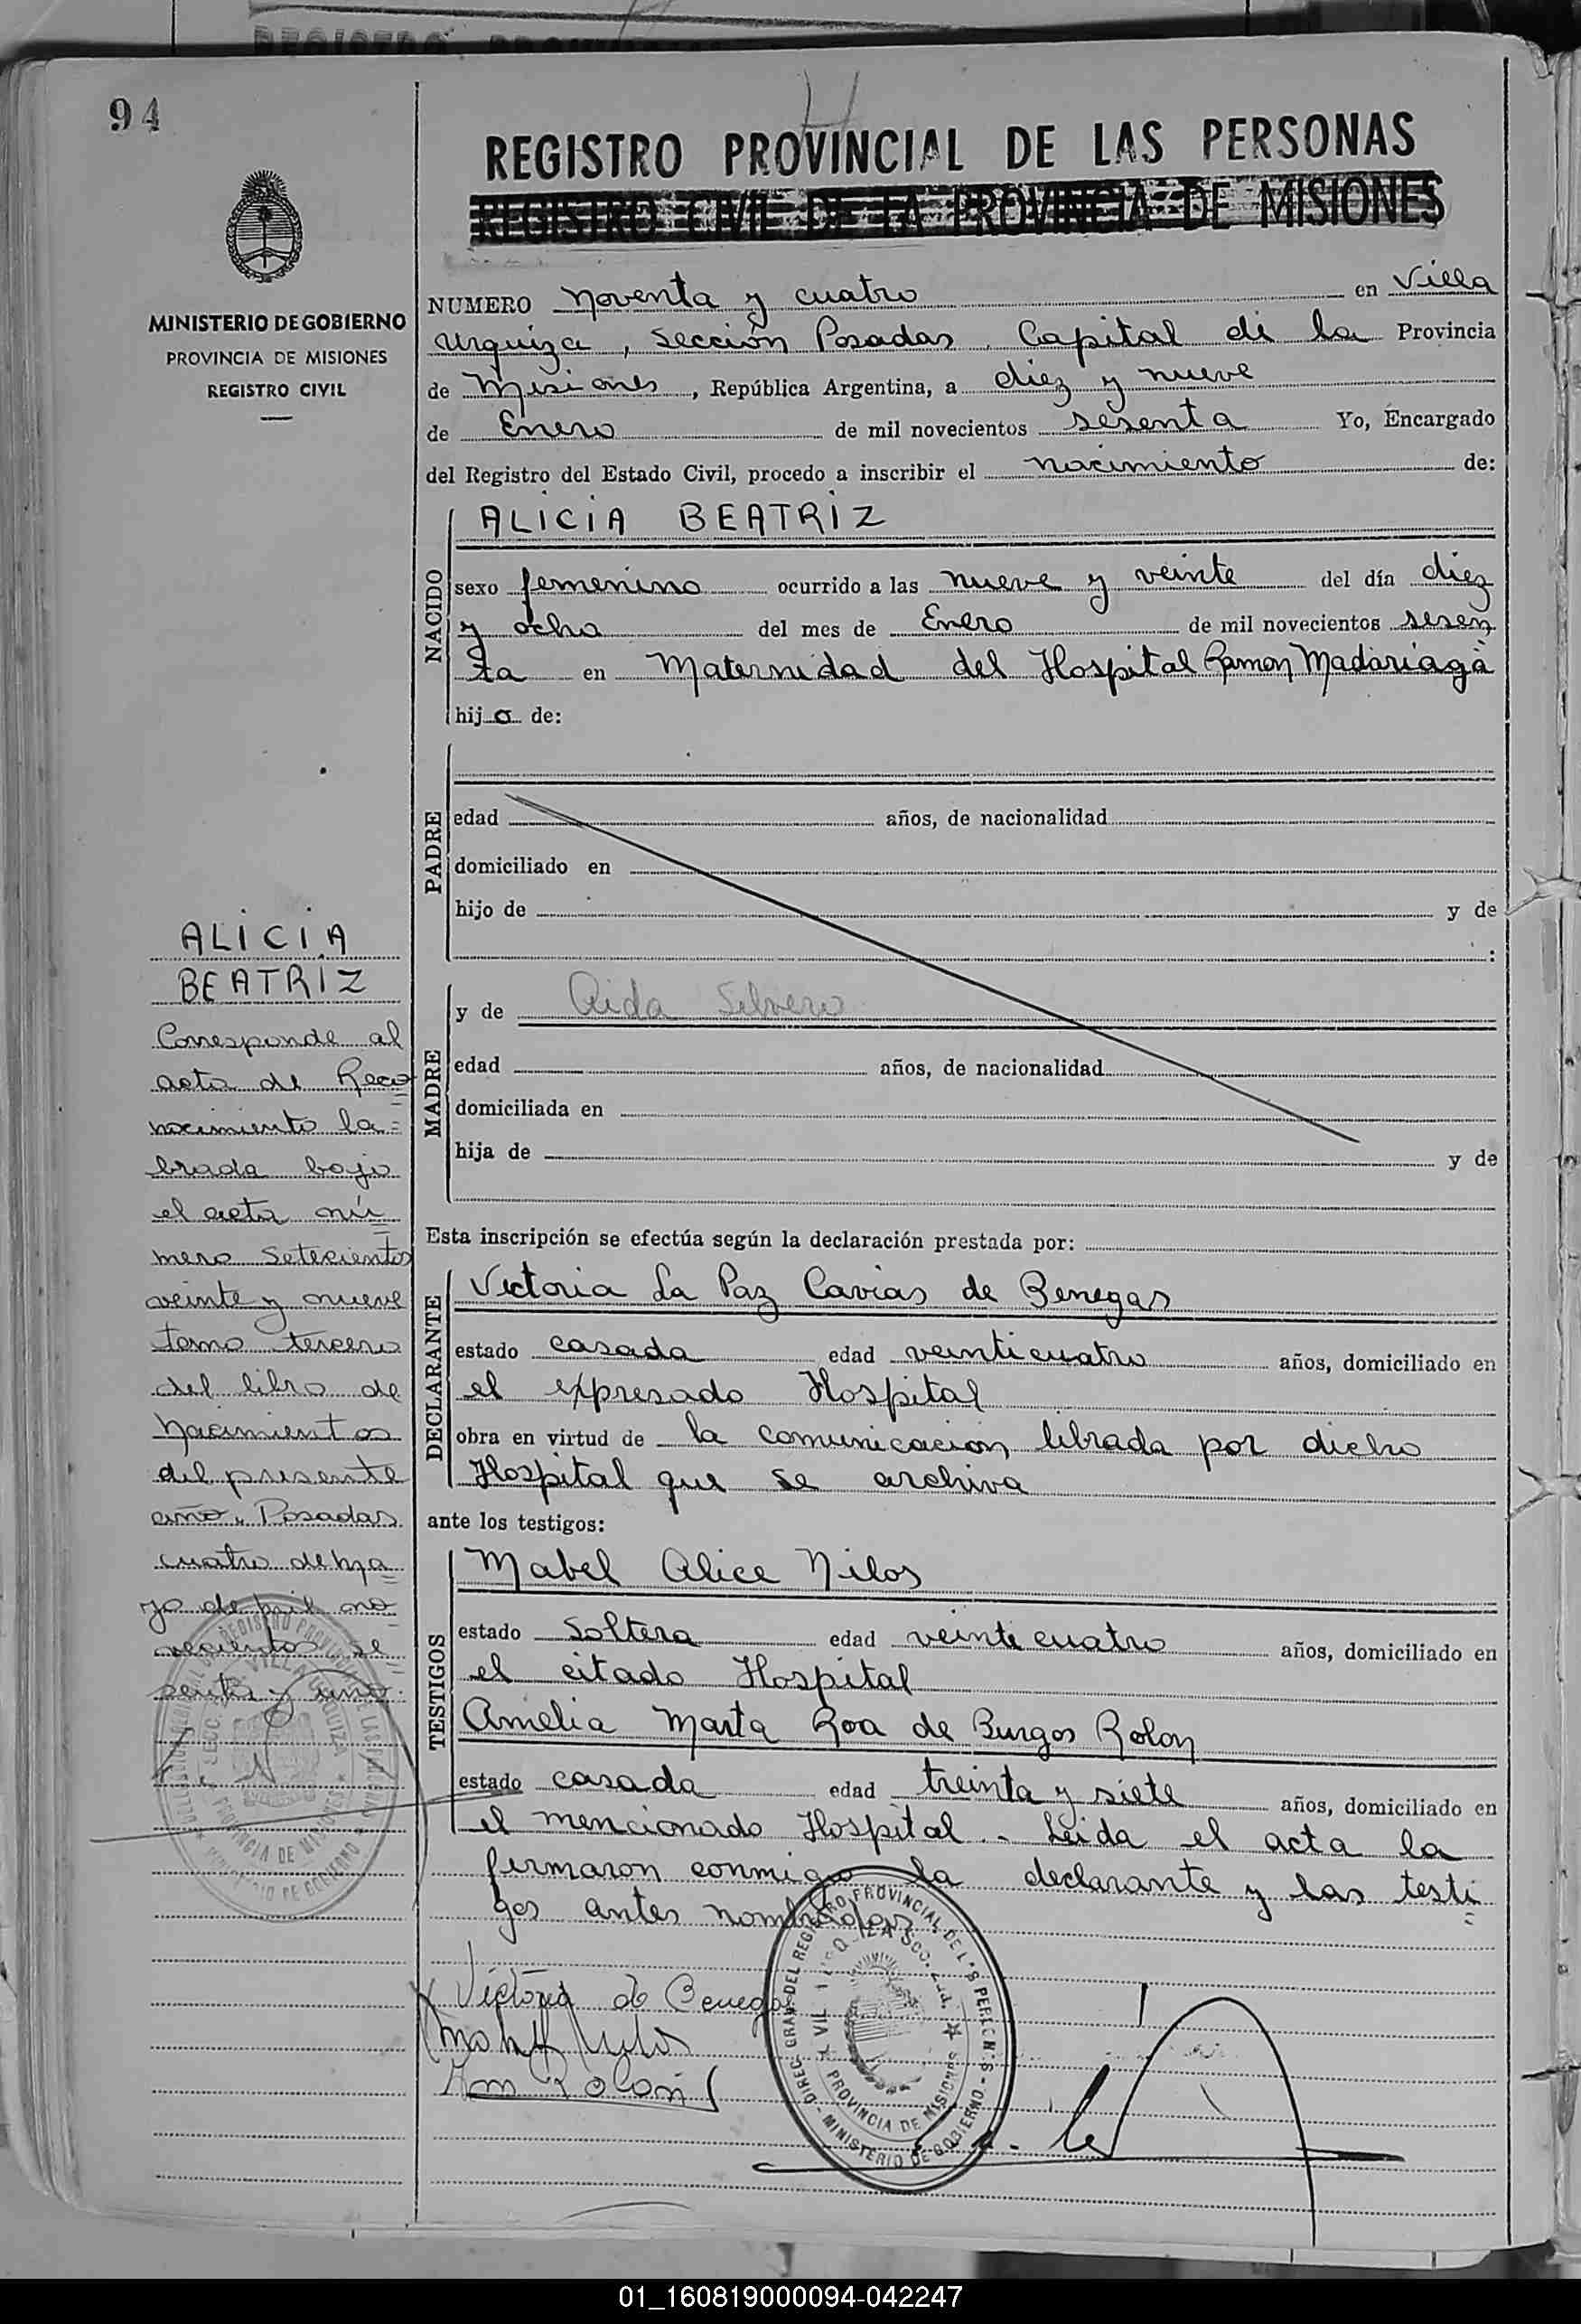 94
REGISTRO PROVINCIAL DE LAS PERSONAS
REGISTRO CIVIL DE LA PROVINCIA DE MISIONES
MINISTERIO DE GOBIERNO
PROVINCIA DE MISIONES
REGISTRO CIVIL
NUMERO noventa y cuatro en Villa
Urquiza, sección Posadas, Capital de la Provincia
de Misiones, República Argentina, a diez y nueve
de Enero de mil novecientos sesenta Yo, Encargado
del Registro del Estado Civil, procedo a inscribir el nacimiento de:
NACIDO
ALICIA BEATRIZ
sexo femenino ocurrido a las nueve y veinte del día diez
y ocho del mes de Enero de mil novecientos sesen
ta en Maternidad del Hospital Ramon Madariaga
hija de:
PADRE
edad años, de nacionalidad
domiciliado en
hijo de y de
:
MADRE
y de Aida Silvero
edad años, de nacionalidad
domiciliada en
hija de y de
Esta inscripción se efectúa según la declaración prestada por:
DECLARANTE
Victoria La Paz Cavias de Benegas
estado casada edad veinticuatro años, domiciliado en
el expresado Hospital
obra en virtud de la comunicacion librada por dicho
Hospital que se archiva
ante los testigos:
TESTIGOS
Mabel Alice Nilos
estado soltera edad veinte cuatro años, domiciliado en
el citado Hospital
Amelia Marta Roa de Burgos Rolon
estado casada edad treinta y siete años, domiciliado en
el mencionado Hospital.- Leida el acta la
firmaron conmigo la declarante y las testi=
gos antes nombradas
Victoria de Benegas
ALICIA
BEATRIZ
Corresponde al
acta de Reco=
nocimiento la=
brada bajo
el acta nú=
mero setecientos
veinte y nueve
tomo tercero
del libro de
Nacimientos
del presente
año. Posadas
cuatro de Ma=
yo de mil no=
vecientos se=
senta y uno.
PROVINCIA DE MISIONES
MINISTERIO DE GOBIERNO
01_160819000094-042247